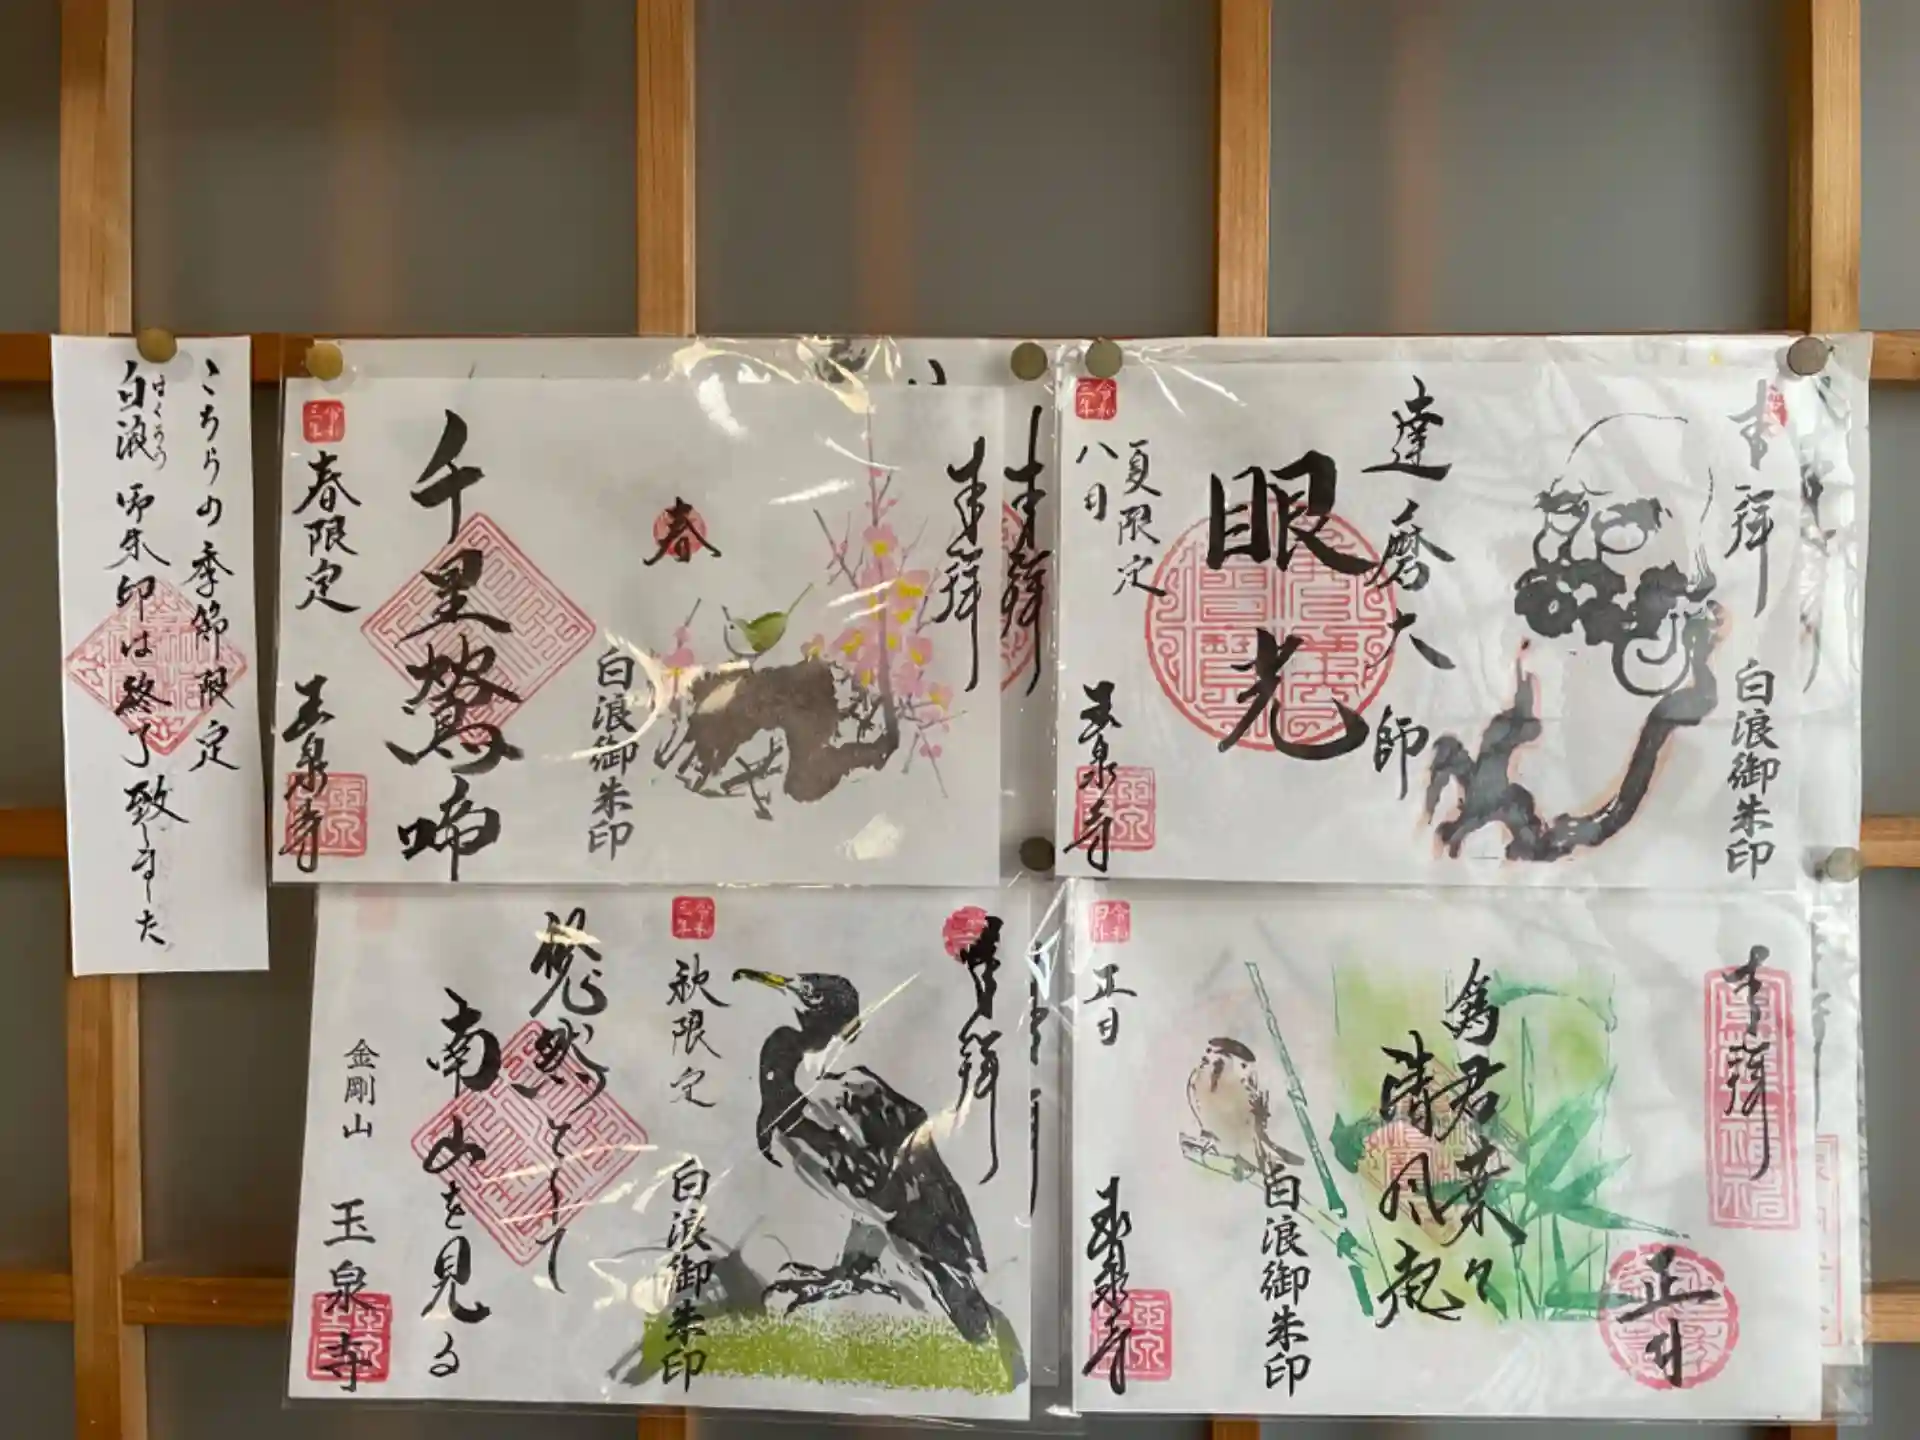 こちらの季節限定
白浪御朱印は終了致しました
はくろう
奉拝
春
白浪御朱印
千里鶯啼
春限定
玉泉寺
奉拝
奉拝
白浪御朱印
達磨大師
眼光
夏限定
八月
令和三年
玉泉寺
奉拝
白浪御朱印
秋限定
令和三年
悠然として
南山を見る
金剛山
玉泉寺
奉拝
正月
為君葉々
清風起
白浪御朱印
正月
玉泉寺